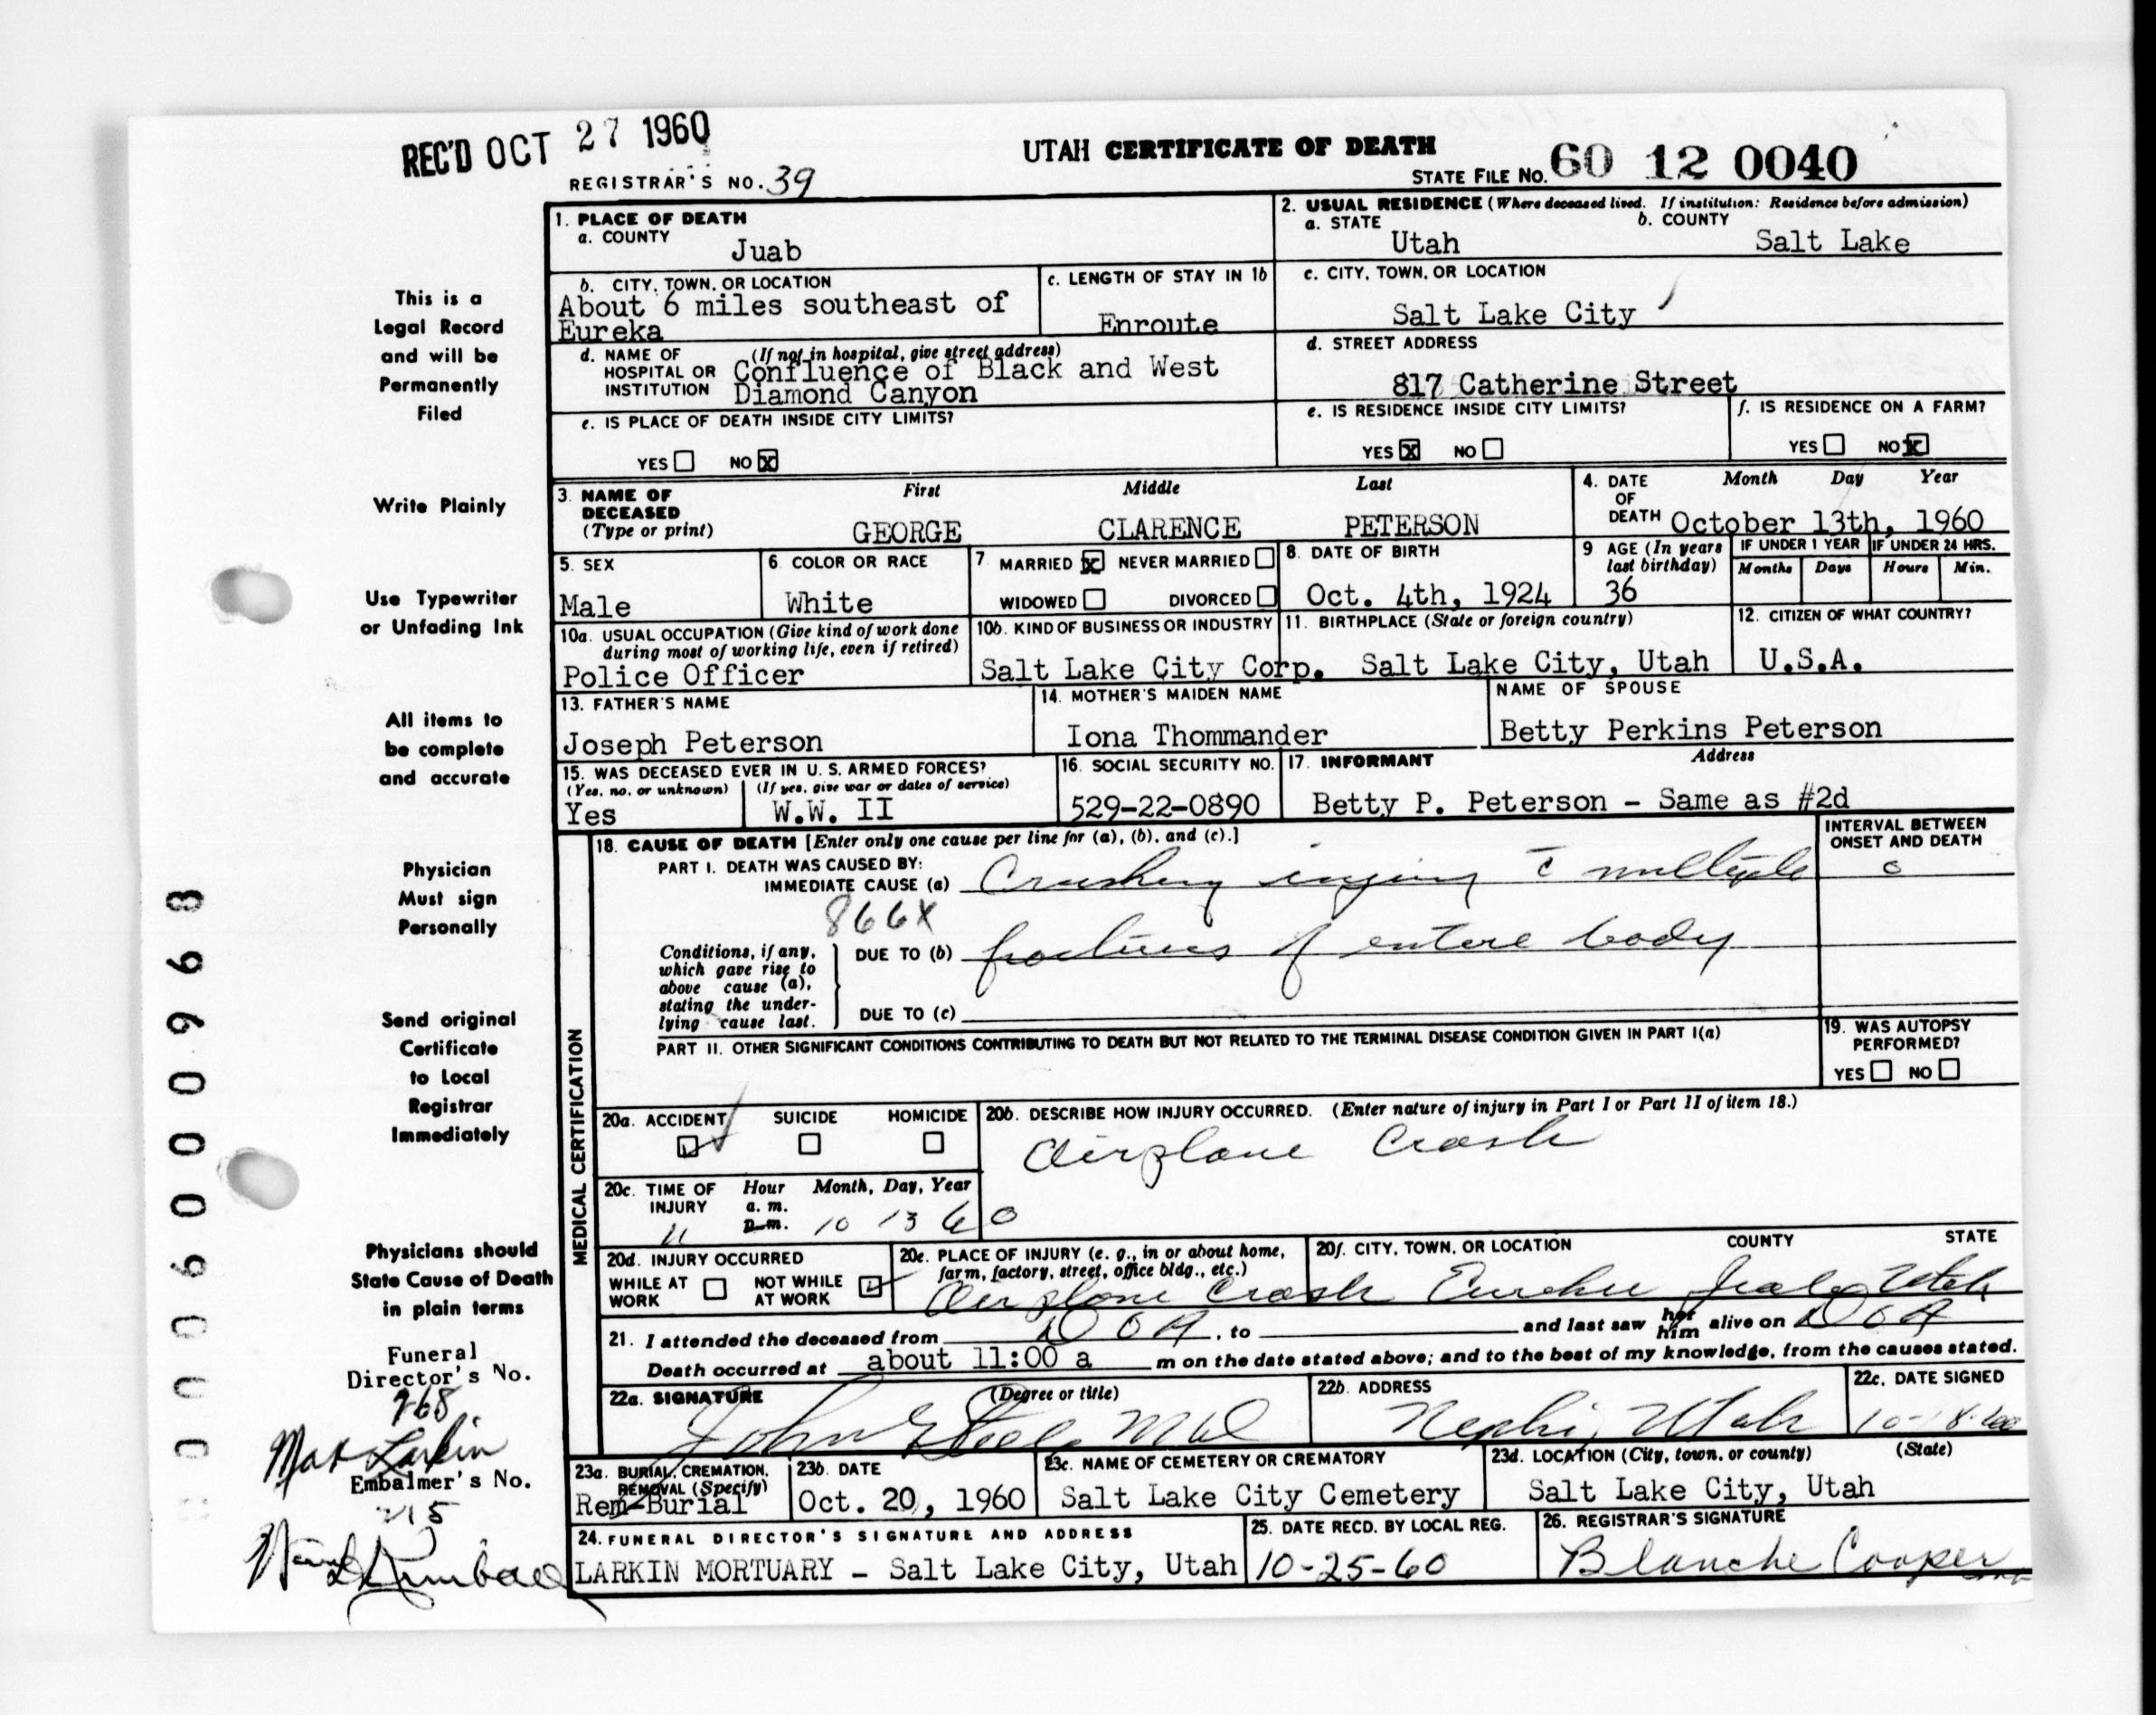 REC'D OCT 27 1960
REGISTRAR'S NO. 39
UTAH CERTIFICATE OF DEATH
STATE FILE NO. 60 12 0040
This is a
Legal Record
and will be
Permanently
Filed
Write Plainly
Use Typewriter
or Unfading Ink
All items to
be complete
and accurate
Physician
Must sign
Personally
Send original
Certificate
to Local
Registrar
Immediately
Physicians should
State Cause of Death
in plain terms
Funeral
Director's No.
268
Max Larkin
Embalmer's No.
215
1. PLACE OF DEATH
a. COUNTY
Juab
b. CITY, TOWN, OR LOCATION
About 6 miles southeast of
Eureka
c. LENGTH OF STAY IN 1b
Enroute
d. NAME OF HOSPITAL OR INSTITUTION (If not in hospital, give street address)
Confluence of Black and West
Diamond Canyon
e. IS PLACE OF DEATH INSIDE CITY LIMITS?
YES NO X
2. USUAL RESIDENCE (Where deceased lived. If institution: Residence before admission)
a. STATE
Utah
b. COUNTY
Salt Lake
c. CITY, TOWN, OR LOCATION
Salt Lake City
d. STREET ADDRESS
817 Catherine Street
e. IS RESIDENCE INSIDE CITY LIMITS?
YES X NO
f. IS RESIDENCE ON A FARM?
YES NO X
3. NAME OF DECEASED (Type or print)
First Middle Last
GEORGE CLARENCE PETERSON
4. DATE OF DEATH Month Day Year
October 13th, 1960
5. SEX
Male
6. COLOR OR RACE
White
7. MARRIED X NEVER MARRIED
WIDOWED DIVORCED
8. DATE OF BIRTH
Oct. 4th, 1924
9 AGE (In years last birthday)
36
IF UNDER 1 YEAR IF UNDER 24 HRS.
Months Days Hours Min.
10a. USUAL OCCUPATION (Give kind of work done
during most of working life, even if retired)
Police Officer
10b. KIND OF BUSINESS OR INDUSTRY
Salt Lake City Corp.
11. BIRTHPLACE (State or foreign country)
Salt Lake City, Utah
12. CITIZEN OF WHAT COUNTRY?
U.S.A.
13. FATHER'S NAME
Joseph Peterson
14. MOTHER'S MAIDEN NAME
Iona Thommander
NAME OF SPOUSE
Betty Perkins Peterson
15. WAS DECEASED EVER IN U. S. ARMED FORCES?
(Yes, no, or unknown) (If yes, give war or dates of service)
Yes W.W. II
16. SOCIAL SECURITY NO.
529-22-0890
17. INFORMANT Address
Betty P. Peterson - Same as #2d
MEDICAL CERTIFICATION
18. CAUSE OF DEATH [Enter only one cause per line for (a), (b), and (c).]
INTERVAL BETWEEN
ONSET AND DEATH
PART I. DEATH WAS CAUSED BY:
IMMEDIATE CAUSE (a) Crushing injury c̄ multiple
o
866X
Conditions, if any,
which gave rise to
above cause (a),
stating the under-
lying cause last.
DUE TO (b) fractures of entire body
DUE TO (c)
PART II. OTHER SIGNIFICANT CONDITIONS CONTRIBUTING TO DEATH BUT NOT RELATED TO THE TERMINAL DISEASE CONDITION GIVEN IN PART I(a)
19. WAS AUTOPSY
PERFORMED?
YES NO
20a. ACCIDENT SUICIDE HOMICIDE
20b. DESCRIBE HOW INJURY OCCURRED. (Enter nature of injury in Part I or Part II of item 18.)
Airplane Crash
20c. TIME OF INJURY Hour Month, Day, Year
a. m.
p. m.
11 10 13 60
20d. INJURY OCCURRED
WHILE AT WORK NOT WHILE AT WORK
20e. PLACE OF INJURY (e. g., in or about home,
farm, factory, street, office bldg., etc.)
Airplane Crash
20f. CITY, TOWN, OR LOCATION COUNTY STATE
Eureka Juab Utah
21. I attended the deceased from DOA, to and last saw her him alive on DOA
Death occurred at about 11:00 a m on the date stated above; and to the best of my knowledge, from the causes stated.
22a. SIGNATURE (Degree or title)
John Steele MD
22b. ADDRESS
Nephi, Utah
22c. DATE SIGNED
10-18-60
23a. BURIAL, CREMATION,
REMOVAL (Specify)
Rem-Burial
23b. DATE
Oct. 20, 1960
23c. NAME OF CEMETERY OR CREMATORY
Salt Lake City Cemetery
23d. LOCATION (City, town, or county) (State)
Salt Lake City, Utah
24. FUNERAL DIRECTOR'S SIGNATURE AND ADDRESS
LARKIN MORTUARY - Salt Lake City, Utah
25. DATE RECD. BY LOCAL REG.
10-25-60
26. REGISTRAR'S SIGNATURE
Blanche Cooper